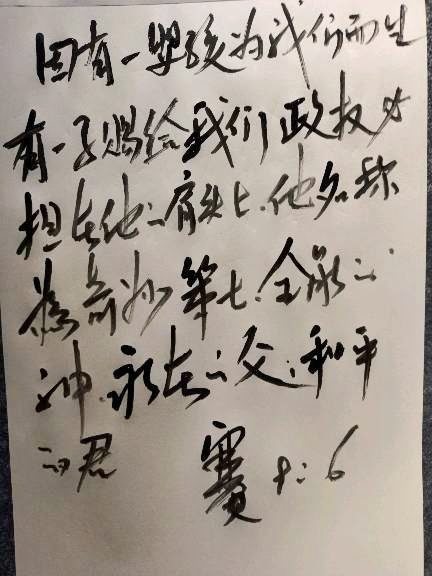 因有一婴孩为我们而生
有一子赐给我们政权必
担在他的肩头上.他名称
为奇妙 策士.全能的
神.永在的父.和平
的君 赛9:6